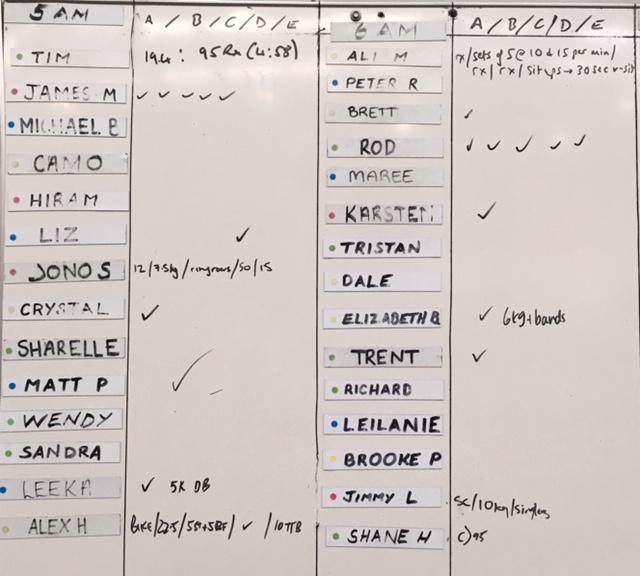 5 AM A / B / C / D / E
TIM 19.4 : 95 Rx (4:58)
JAMES M ✓ ✓ ✓ ✓ ✓
MICHAEL B
CAMO
HIRAM
LIZ ✓
JONO S 12/7.5kg/ringrows/50/15
CRYSTAL ✓
SHARELLE
MATT P ✓
WENDY
SANDRA
LEEKA ✓ 5K DB
ALEX H /22.5/ /✓/10TTB
6 AM A / B / C / D / E
ALI M rx/sets of 5 @ 10 & 15 per min/
rx/rx/situps → 30 sec v-sit
PETER R
BRETT ✓
ROD ✓ ✓ ✓ ✓ ✓
MAREE
KARSTEN ✓
TRISTAN
DALE
ELIZABETH B ✓ 6kg + bands
TRENT ✓
RICHARD
LEILANIE
BROOKE P
JIMMY L Sc/10kg/singles
SHANE H C) 95